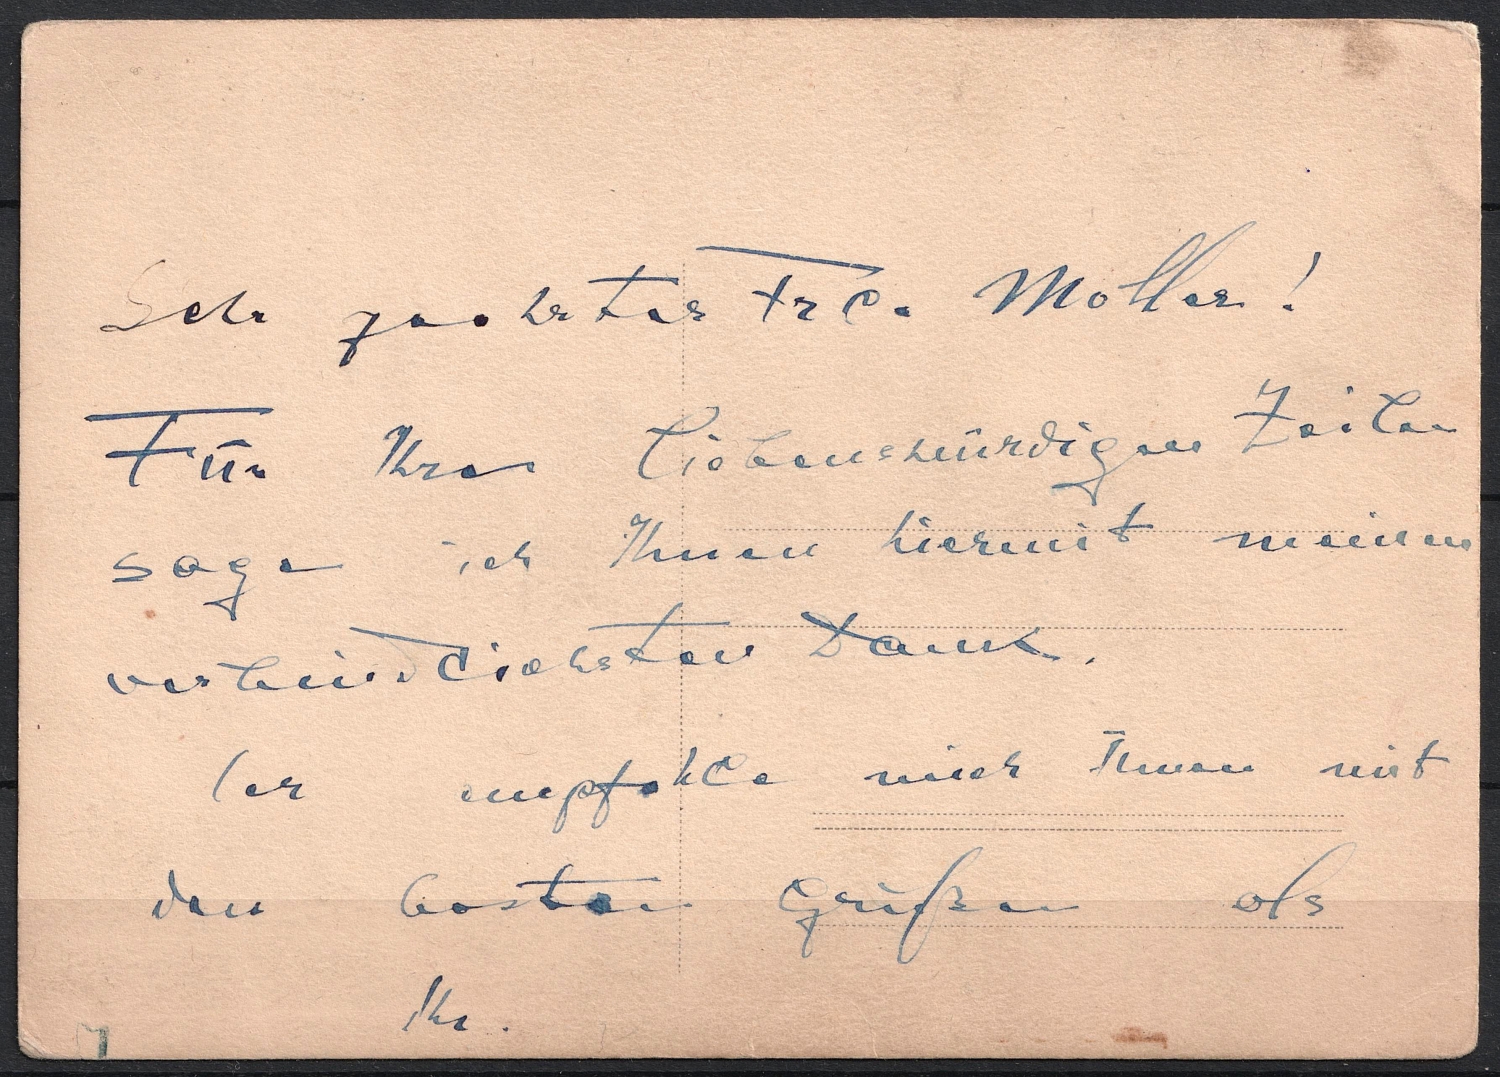 Sehr geehrtes Frl. Moller!
Für Ihre liebenswürdigen Zeilen
sage ich Ihnen hiermit meinen
verbindlichsten Dank.
Ich empfehle mich Ihnen mit
den besten Grüßen als
Ihr.